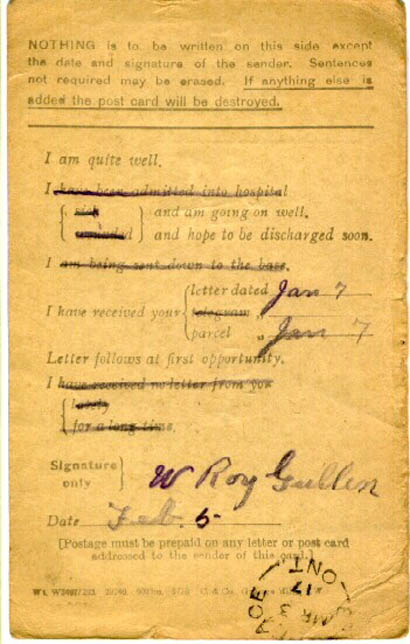 NOTHING is to be written on this side except
the date and signature of the sender. Sentences
not required may be erased. If anything else is
added the post card will be destroyed.
I am quite well.
I have been admitted into hospital
sick and am going on well.
wounded and hope to be discharged soon.
I am being sent down to the base.
letter dated Jan 7
I have received your telegram „
parcel „ Jan 7
Letter follows at first opportunity.
I have received no letter from you
lately
for a long time.
Signature
only
W Roy Gullen
Date Feb. 5
[Postage must be prepaid on any letter or post card
addressed to the sender of this card.]
ONT.
17
MR 3